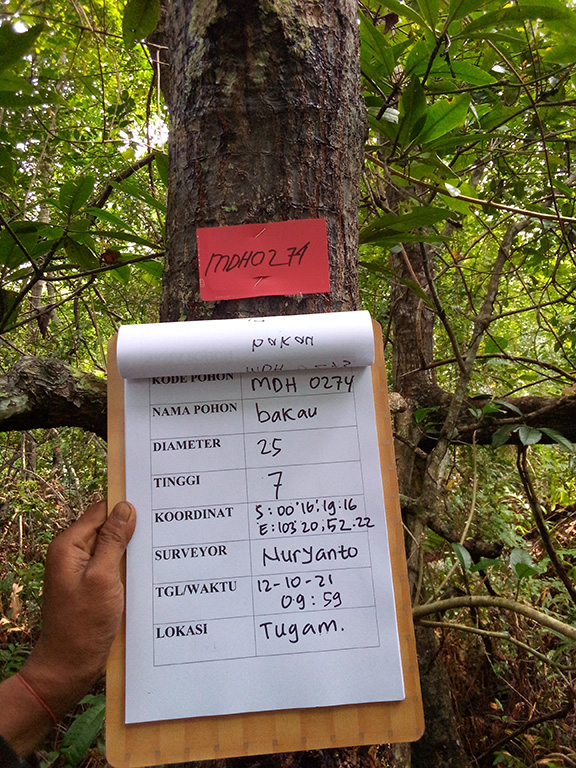 MDH0274
pakan
KODE POHON MDH 0274
NAMA POHON bakau
DIAMETER 25
TINGGI 7
KOORDINAT S:00°16',19.16
E:103°20,52.22
SURVEYOR Nuryanto
TGL/WAKTU 12-10-21
09:59
LOKASI Tugam.